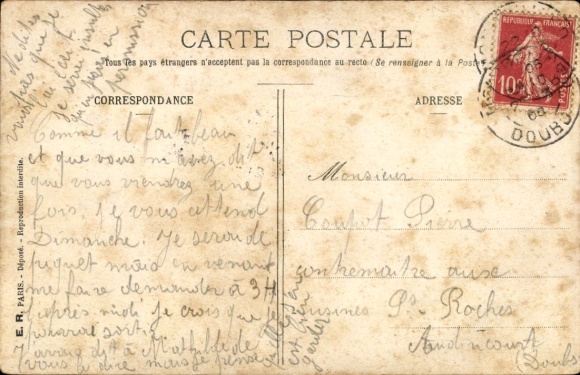 CARTE POSTALE
Tous les pays étrangers n'acceptent pas la correspondance au recto (Se renseigner à la Poste)
CORRESPONDANCE
ADRESSE
REPUBLIQUE FRANÇAISE
10
POSTES
DOUBS
E. R. PARIS. - Déposé. - Reproduction interdite.
Comme il fait beau
et que vous m'avez dit
que vous viendrez une
fois, je vous attend
Dimanche. Je serai de
piquet mais en venant
me faire demander à 3H
l'après midi je crois que je
pourrai sortir
J'avais dit à Mathilde de
vous le dire mais je pense
Ne dites
pas que je
vous
je serai
en
permission
Monsieur
Coupot Pierre
contremaitre aux
usines Ps. Roches
Audincourt
(Doubs)